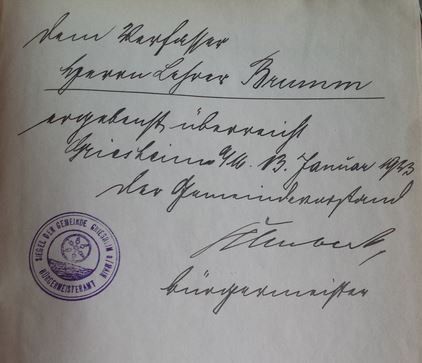 Dem Verfasser
Herrn Lehrer Brumm
ergebenst überreicht
Griesheim a/M. 13. Januar 1923
Der Gemeindevorstand
Bürgermeister
SIEGEL DER GEMEINDE GRIESHEIM A/MAIN
BÜRGERMEISTERAMT